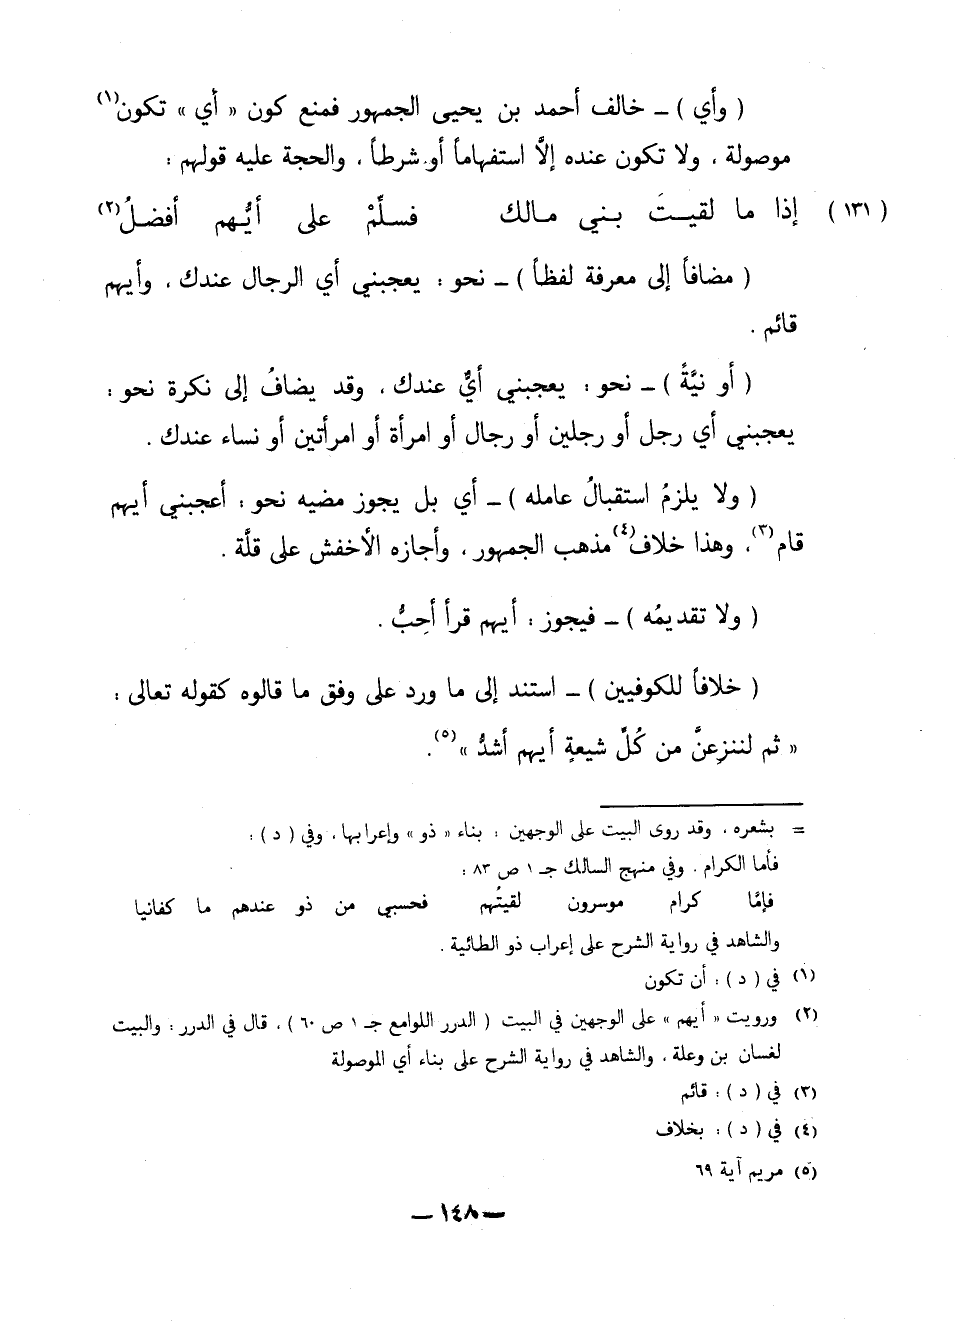 ( وأي ) ــ خالف أحمد بن يحيى الجمهور فمنع كون « أي » تكون(١)
موصولة ، ولا تكون عنده إلاَّ استفهاماً أو شرطاً ، والحجة عليه قولهم :
( ١٣١ ) إذا ما لقيـتَ بـني مـالك فسلّمْ على أيُّـهم أفضـلُ(٢)
( مضافاً إلى معرفة لفظاً ) ــ نحو : يعجبني أي الرجال عندك ، وأيهم
قائم .
( أو نيَّةً ) ــ نحو : يعجبني أيٌّ عندك ، وقد يضافُ إلى نكرة نحو :
يعجبني أي رجل أو رجلين أو رجال أو امرأة أو امرأتين أو نساء عندك .
( ولا يلزمُ استقبالُ عامله ) ــ أي بل يجوز مضيه نحو : أعجبني أيهم
قام(٣)، وهذا خلاف(٤) مذهب الجمهور ، وأجازه الأخفش على قلَّة .
( ولا تقديمُه ) ــ فيجوز : أيهم قرأ أحِبُّ .
( خلافاً للكوفيين ) ــ استند إلى ما ورد على وفق ما قالوه كقوله تعالى :
« ثم لننزعنَّ من كُلِّ شيعةٍ أيهم أشدُّ »(٥).
= بشعره ، وقد روى البيت على الوجهين : بناء « ذو » وإعرابها ، وفي ( د ) :
فأما الكرام . وفي منهج السالك جـ ١ ص ٨٣ :
فإمَّا كرام موسرون لقيتُهم فحسبي من ذو عندهم ما كفانيا
والشاهد في رواية الشرح على إعراب ذو الطائية .
(١) في ( د ) : أن تكون
(٢) ورويت « أيهم » على الوجهين في البيت ( الدرر اللوامع جـ ١ ص ٦٠ ) ، قال في الدرر : والبيت
لغسان بن وعلة ، والشاهد في رواية الشرح على بناء أي الموصولة
(٣) في ( د ) : قائم
(٤) في ( د ) : بخلاف
(٥) مريم آية ٦٩
ــ ١٤٨ ــ